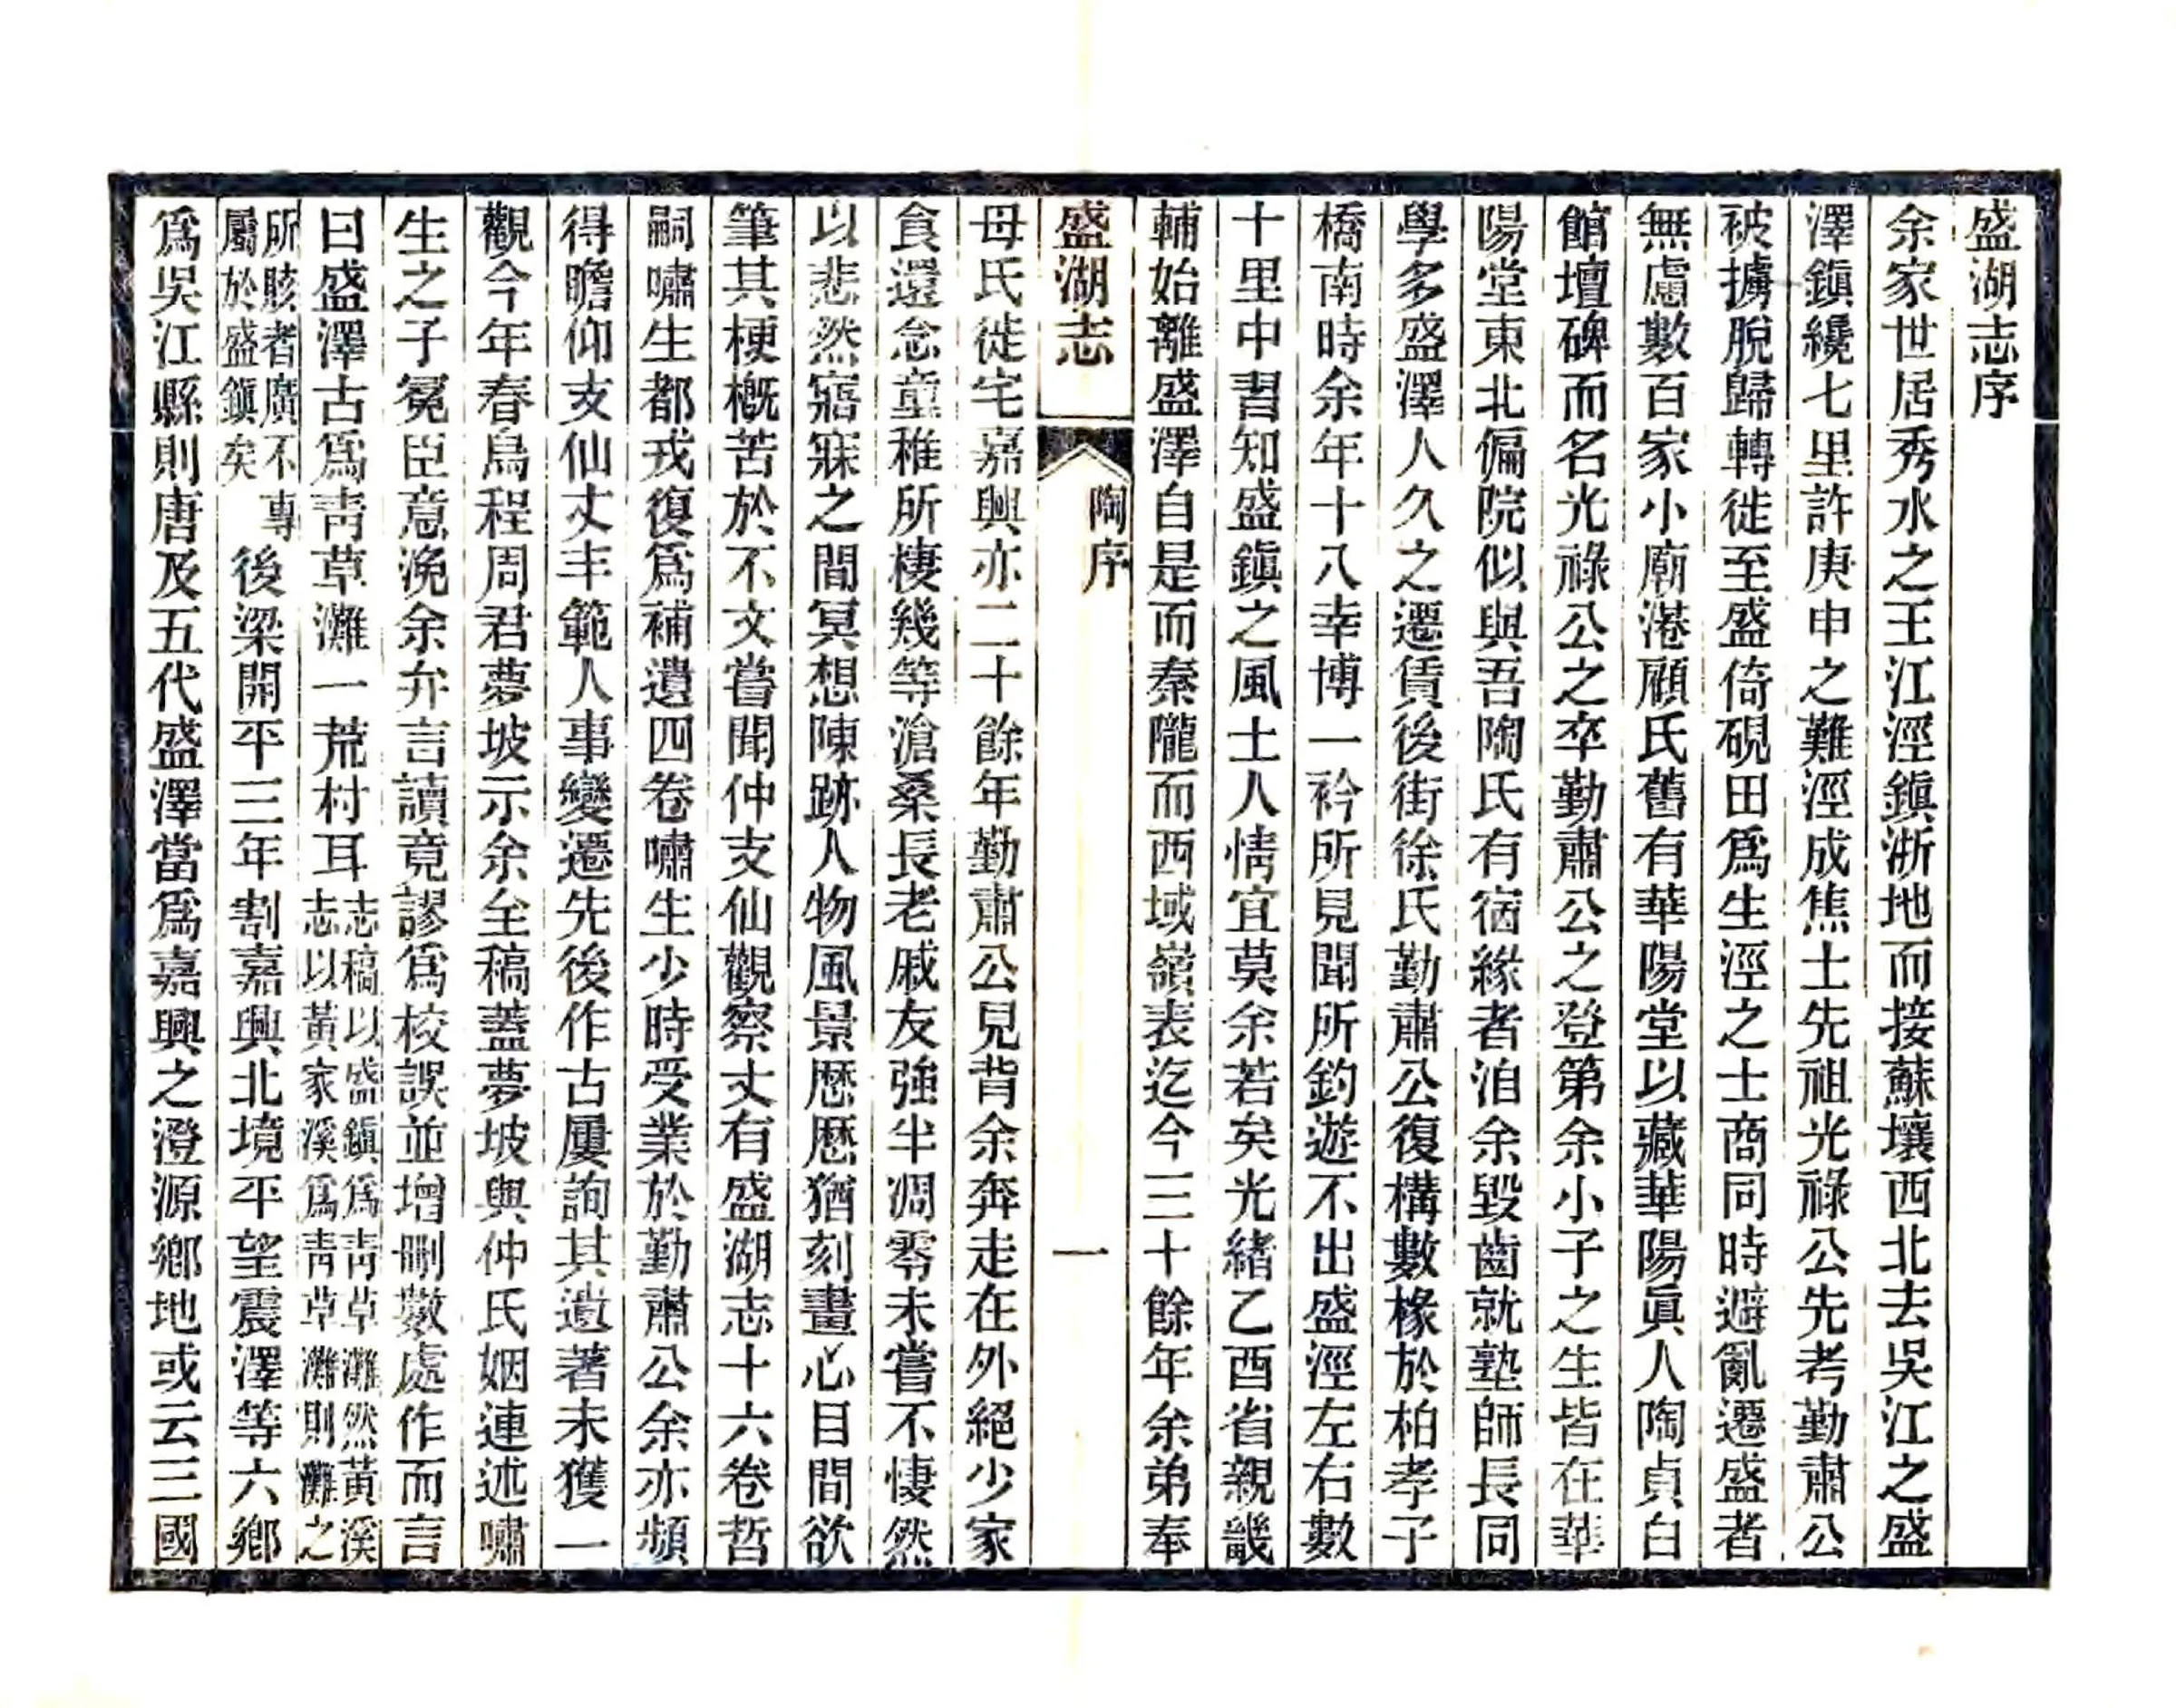 盛湖志序
余家世居秀水之王江涇鎭浙地而接蘇壤西北去吳江之盛
澤鎭纔七里許庚申之難涇成焦土先祖光祿公先考勤肅公
被擄脫歸轉徙至盛倚硯田爲生涇之士商同時避亂遷盛者
無慮數百家小廟港顧氏舊有華陽堂以藏華陽眞人陶貞白
館壇碑而名光祿公之卒勤肅公之登第余小子之生皆在華
陽堂東北偏院似與吾陶氏有宿緣者洎余毀齒就塾師長同
學多盛澤人久之遷賃後街徐氏勤肅公復構數椽於柏孝子
橋南時余年十八幸博一衿所見聞所釣遊不出盛涇左右數
十里中習知盛鎭之風土人情宜莫余若矣光緖乙酉省親畿
輔始離盛澤自是而秦隴而西域嶺表迄今三十餘年余弟奉
盛湖志
陶序
一
母氏徙宅嘉興亦二十餘年勤肅公見背余奔走在外絕少家
食還念童稚所棲幾等滄桑長老戚友強半凋零未嘗不悽然
以悲然寤寐之間冥想陳跡人物風景歷歷猶刻畫心目間欲
筆其梗槪苦於不文嘗聞仲支仙觀察丈有盛湖志十六卷哲
嗣嘯生都戎復爲補遺四卷嘯生少時受業於勤肅公余亦頻
得瞻仰支仙丈丰範人事變遷先後作古屢詢其遺著未獲一
觀今年春烏程周君夢坡示余全稿蓋夢坡與仲氏姻連述嘯
生之子冕臣意浼余弁言讀竟謬爲校誤並增刪數處作而言
曰盛澤古爲靑草灘一荒村耳志稿以盛鎭爲靑草灘然黃溪
志以黃家溪爲靑草灘則灘之
所賅者廣不專
屬於盛鎭矣後梁開平三年割嘉興北境平望震澤等六鄉
爲吳江縣則唐及五代盛澤當爲嘉興之澄源鄉地或云三國